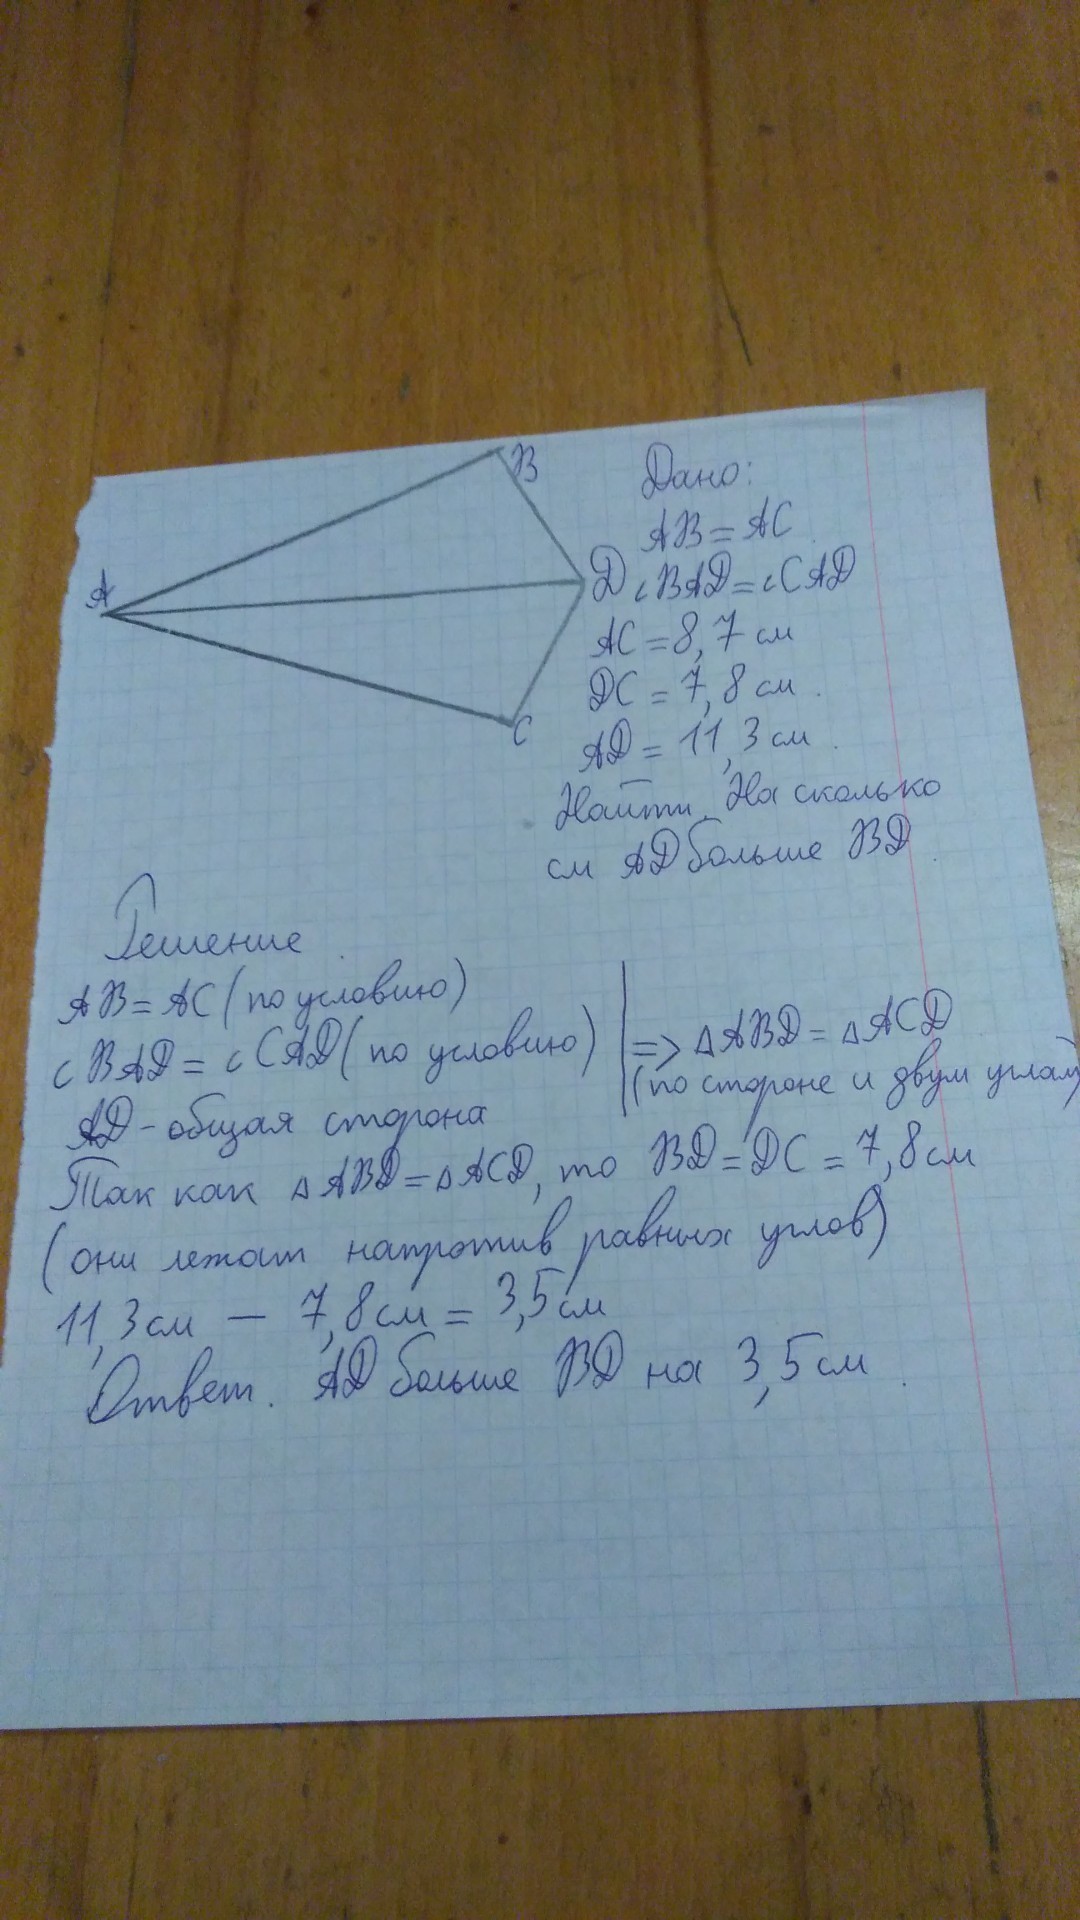 B
A
D
C
Дано:
AB = AC
∠BAD = ∠CAD
AC = 8,7 см
DC = 7,8 см.
AD = 11,3 см.
Найти. На сколько
см AD больше BD.
Решение.
AB = AC (по условию)
∠BAD = ∠CAD (по условию)
=> △ABD = △ACD
(по стороне и двум углам)
AD - общая сторона
Так как △ABD = △ACD, то BD = DC = 7,8 см
(они лежат напротив равных углов)
11,3 см — 7,8 см = 3,5 см
Ответ. AD больше BD на 3,5 см.